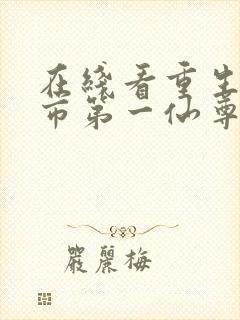 在綫看重生
市第一仙尊
嚴麗梅